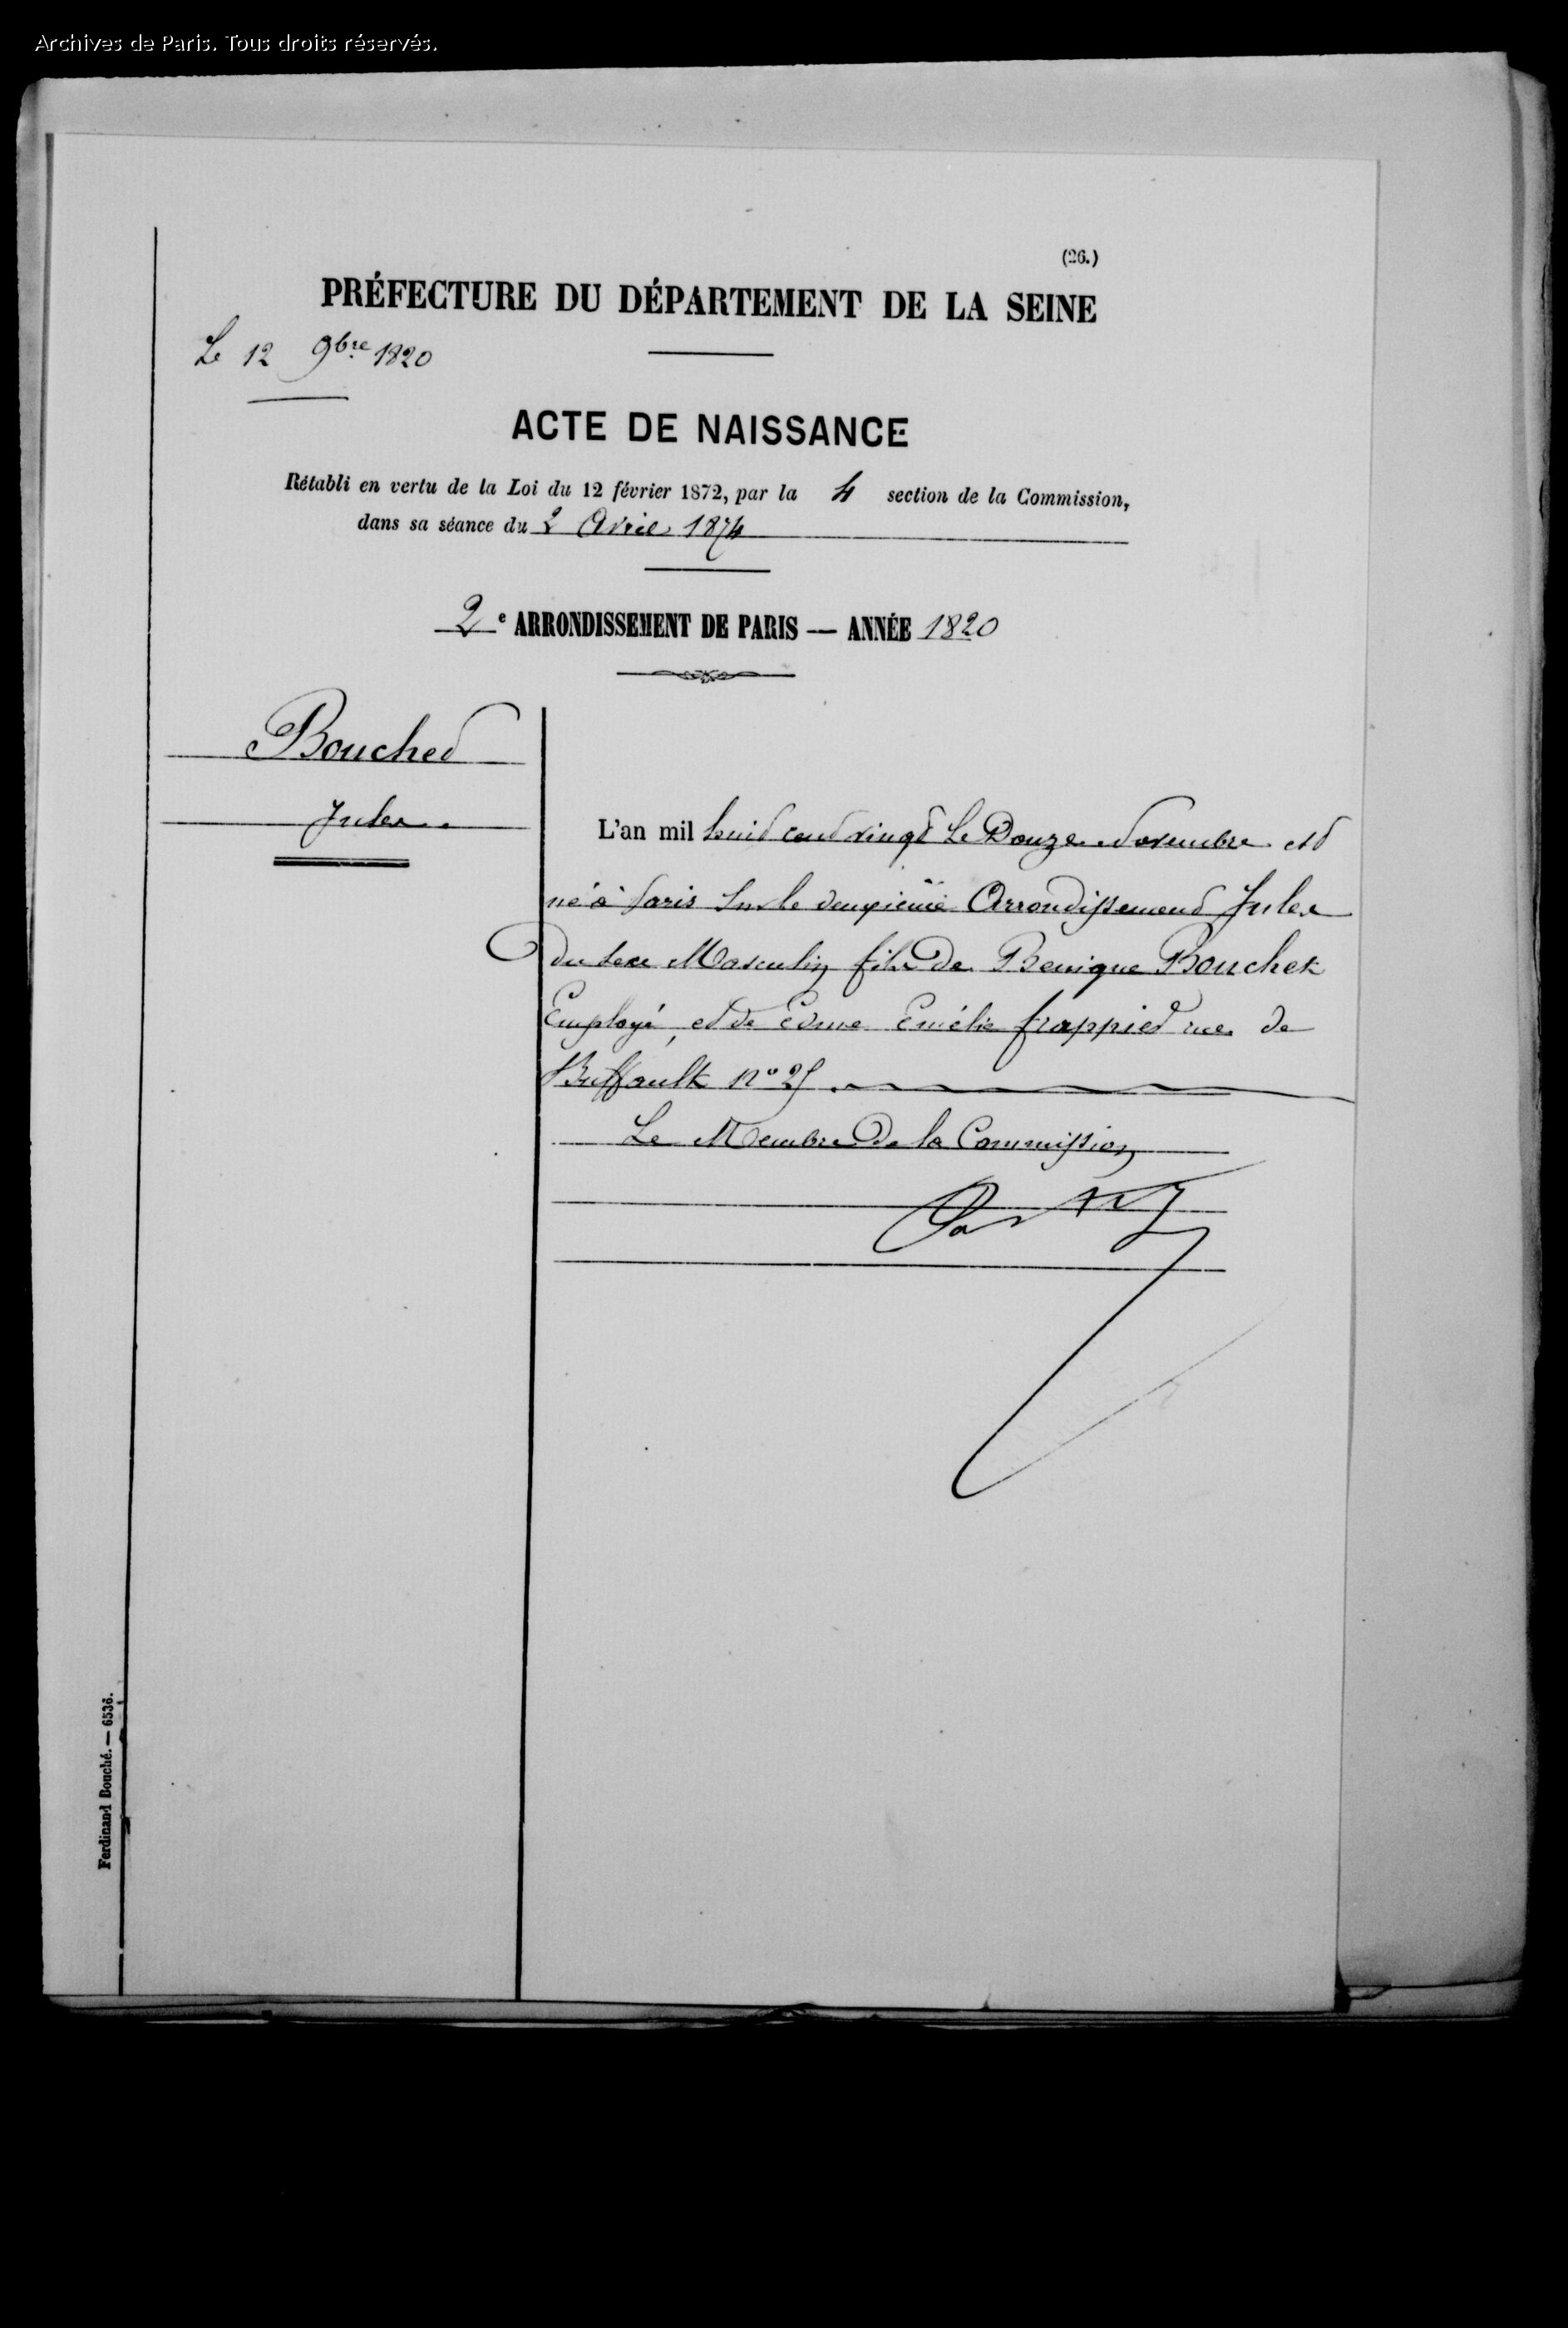 Archives de Paris. Tous droits réservés.
(26.)
PRÉFECTURE DU DÉPARTEMENT DE LA SEINE
Le 12 9bre 1820
ACTE DE NAISSANCE
Rétabli en vertu de la Loi du 12 février 1872, par la 4 section de la Commission,
dans sa séance du 2 Avril 1874
2e ARRONDISSEMENT DE PARIS — ANNÉE 1820
Bouchet
Jules.
L'an mil huit cent vingt Le Douze Novembre est
né à Paris Sur le deuxième Arrondissement Jules
du sexe Masculin fils de Benigne Bouchet
Employé, et de Edme Emélie frappiet rue de
Buffault no 25
Le Membre De la Commission
Ferdinand Bouché. — 6536.